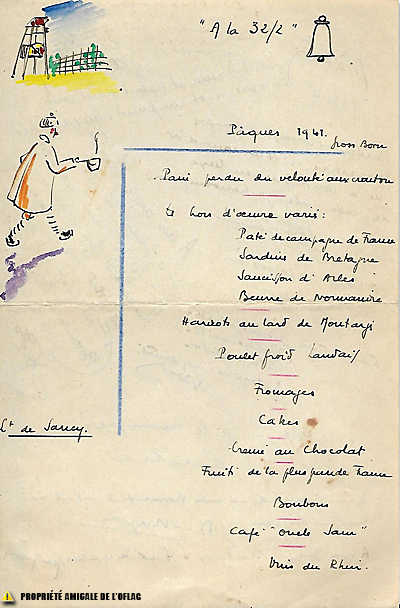 "A la 32/2"
Pâques 1941.
Gross Born
Pain perdu du velouté aux croûton
Hors d'œuvre variés :
Paté de campagne de France
Sardines de Bretagne
Saucisson d'Arles
Beurre de Normandie
Haricots au lard de Montargi
Poulet froid Landais
Fromages
Cakes
Lt de Sancy.
Creme au Chocolat
Fruits de la plus grande France
Bonbons
Café "Oncle Sam"
Vins du Rhin.
PROPRIÉTÉ AMICALE DE L'OFLAG